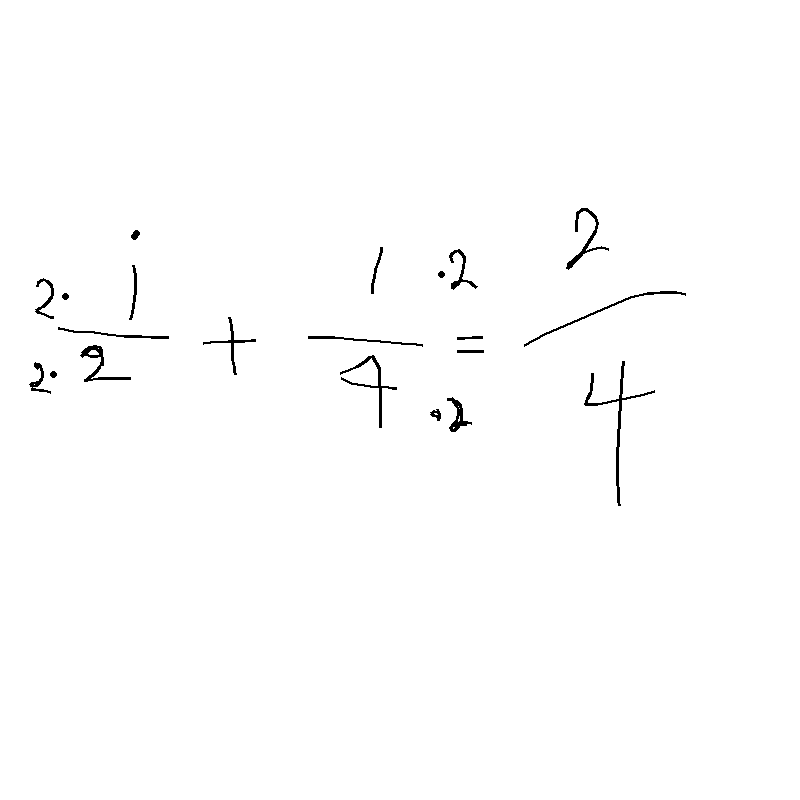 2· i/2· 2 + 1 ·2/4 ·2 = 2/4